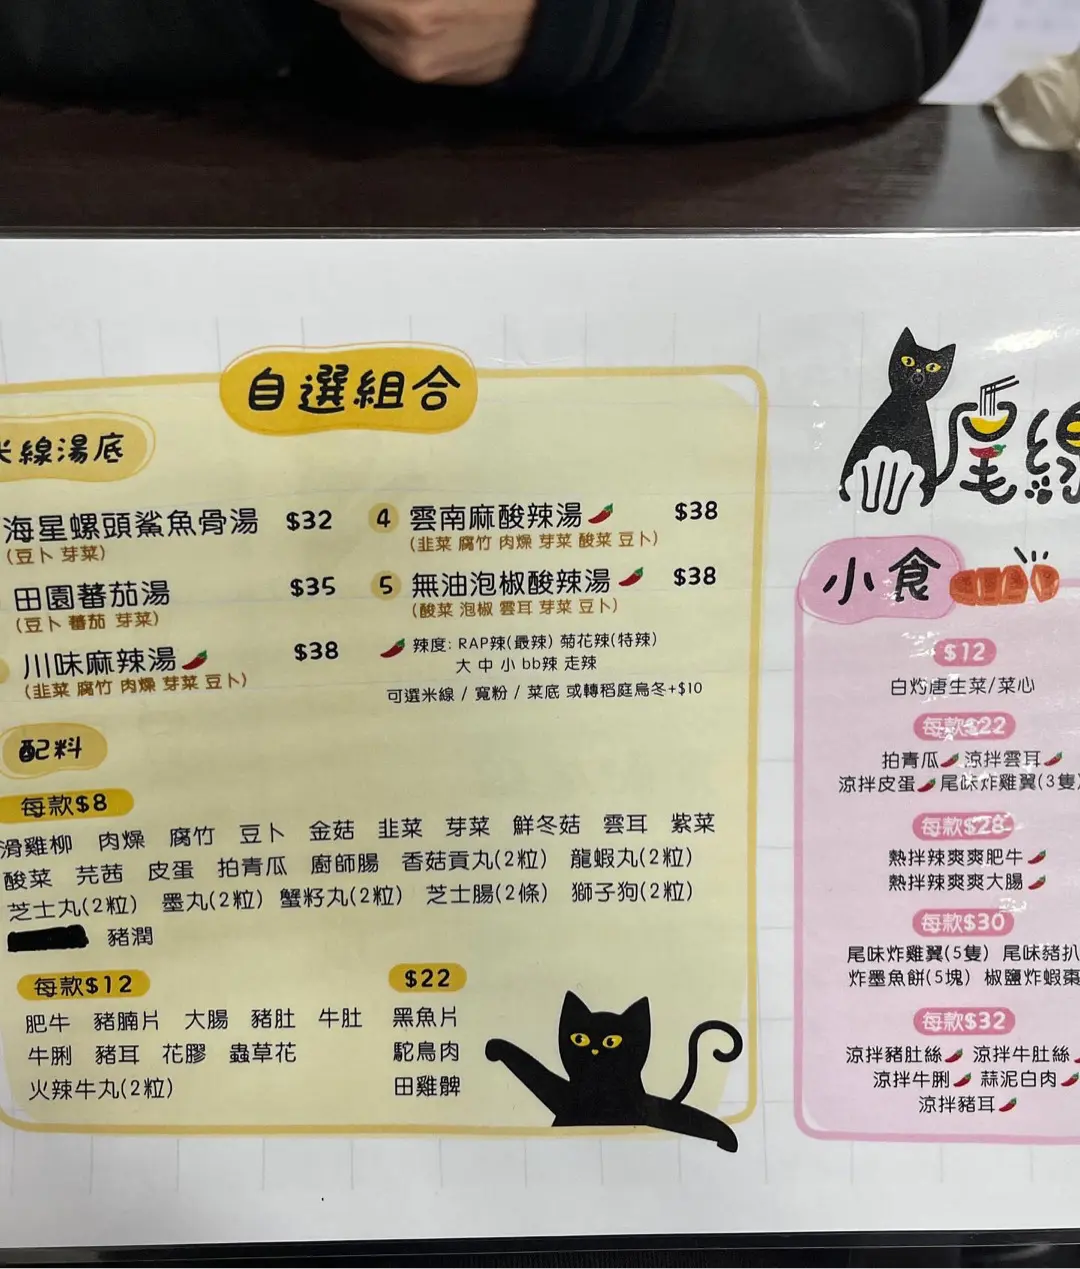 自選組合
米線湯底
海星螺頭鯊魚骨湯 $32
(豆卜 芽菜)
田園蕃茄湯 $35
(豆卜 蕃茄 芽菜)
川味麻辣湯 $38
(韭菜 腐竹 肉燥 芽菜 豆卜)
4 雲南麻酸辣湯 $38
(韭菜 腐竹 肉燥 芽菜 酸菜 豆卜)
5 無油泡椒酸辣湯 $38
(酸菜 泡椒 雲耳 芽菜 豆卜)
辣度: RAP辣(最辣) 菊花辣(特辣)
大 中 小 bb辣 走辣
可選米線 / 寬粉 / 菜底 或轉稻庭烏冬+$10
配料
每款$8
滑雞柳 肉燥 腐竹 豆卜 金菇 韭菜 芽菜 鮮冬菇 雲耳 紫菜
酸菜 芫茜 皮蛋 拍青瓜 廚師腸 香菇貢丸(2粒) 龍蝦丸(2粒)
芝士丸(2粒) 墨丸(2粒) 蟹籽丸(2粒) 芝士腸(2條) 獅子狗(2粒)
豬潤
每款$12
肥牛 豬腩片 大腸 豬肚 牛肚
牛脷 豬耳 花膠 蟲草花
火辣牛丸(2粒)
$22
黑魚片
駝鳥肉
田雞髀
尾線
小食
$12
白灼唐生菜/菜心
每款$22
拍青瓜 涼拌雲耳
涼拌皮蛋 尾味炸雞翼(3隻)
每款$28
熱拌辣爽爽肥牛
熱拌辣爽爽大腸
每款$30
尾味炸雞翼(5隻) 尾味豬扒
炸墨魚餅(5塊) 椒鹽炸蝦棗
每款$32
涼拌豬肚絲 涼拌牛肚絲
涼拌牛脷 蒜泥白肉
涼拌豬耳